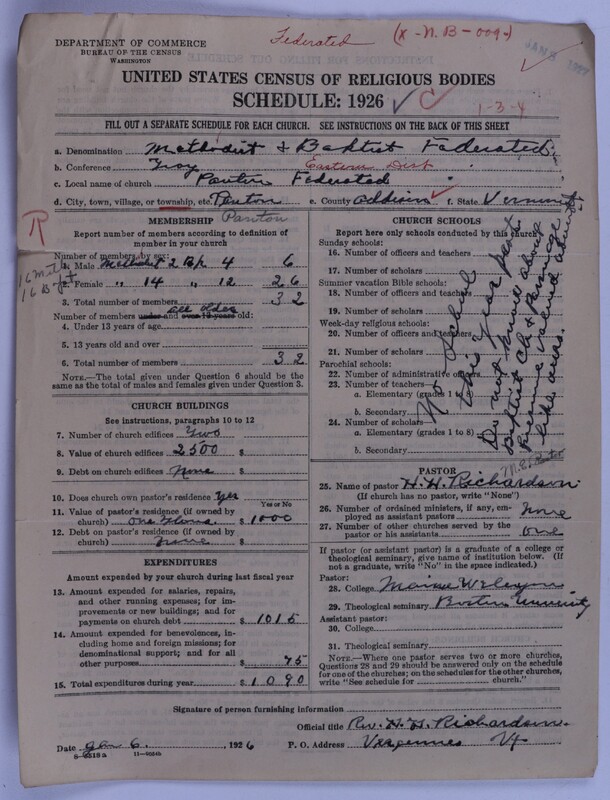 Federated (X-N.B-009)
DEPARTMENT OF COMMERCE
BUREAU OF THE CENSUS
WASHINGTON
JAN 8 1927
UNITED STATES CENSUS OF RELIGIOUS BODIES
SCHEDULE: 1926
1-3-4
FILL OUT A SEPARATE SCHEDULE FOR EACH CHURCH. SEE INSTRUCTIONS ON THE BACK OF THIS SHEET
a. Denomination Methodist & Baptist Federated
b. Conference Troy Eastern Dist
c. Local name of church Panton Federated
d. City, town, village, or township, etc. Panton e. County Addison f. State Vermont
Panton
R
MEMBERSHIP
Report number of members according to definition of member in your church
Number of members by sex:
1. Male Methodist 2 Bap 4 6
16 Meth
16 Bapt
2. Female " 14 " 12 26
3. Total number of members 32
Number of members under and over 13 years old: all older
4. Under 13 years of age
5. 13 years old and over
6. Total number of members 32
NOTE.—The total given under Question 6 should be the same as the total of males and females given under Question 3.
CHURCH BUILDINGS
See instructions, paragraphs 10 to 12
7. Number of church edifices Two
8. Value of church edifices 2500 $
9. Debt on church edifices None $
10. Does church own pastor's residence Yes
Yes or No
11. Value of pastor's residence (if owned by church) one Home $ 1000
12. Debt on pastor's residence (if owned by church) none $
EXPENDITURES
Amount expended by your church during last fiscal year
13. Amount expended for salaries, repairs, and other running expenses; for improvements or new buildings; and for payments on church debt $ 1015
14. Amount expended for benevolences, including home and foreign missions; for denominational support; and for all other purposes $ 75
15. Total expenditures during year $ 1090
CHURCH SCHOOLS
Report here only schools conducted by this church
Sunday schools:
16. Number of officers and teachers
17. Number of scholars
Summer vacation Bible schools:
18. Number of officers and teachers
19. Number of scholars
Week-day religious schools:
20. Number of officers and teachers
21. Number of scholars
Parochial schools:
22. Number of administrative officers
23. Number of teachers—
a. Elementary (grades 1 to 8)
b. Secondary
24. Number of scholars—
a. Elementary (grades 1 to 8)
b. Secondary
No School
this year past
Do not know about
Baptist Ch & Parsonage
Presume valued about
like ours.
PASTOR
25. Name of pastor H. H. Richardson
(If church has no pastor, write "None")
26. Number of ordained ministers, if any, employed as assistant pastors none
27. Number of other churches served by the pastor or his assistants one
If pastor (or assistant pastor) is a graduate of a college or theological seminary, give name of institution below. (If not a graduate, write "No" in the space indicated.)
Pastor:
28. College Maine Wesleyan
29. Theological seminary Boston University
Assistant pastor:
30. College
31. Theological seminary
NOTE.—Where one pastor serves two or more churches, Questions 28 and 29 should be answered only on the schedule for one of the churches; on the schedules for the other churches, write "See schedule for church."
Signature of person furnishing information
Official title Rev. H. H. Richardson
Date Jan 6, 1926 P. O. Address Vergennes Vt
8-9318a 11-9034b